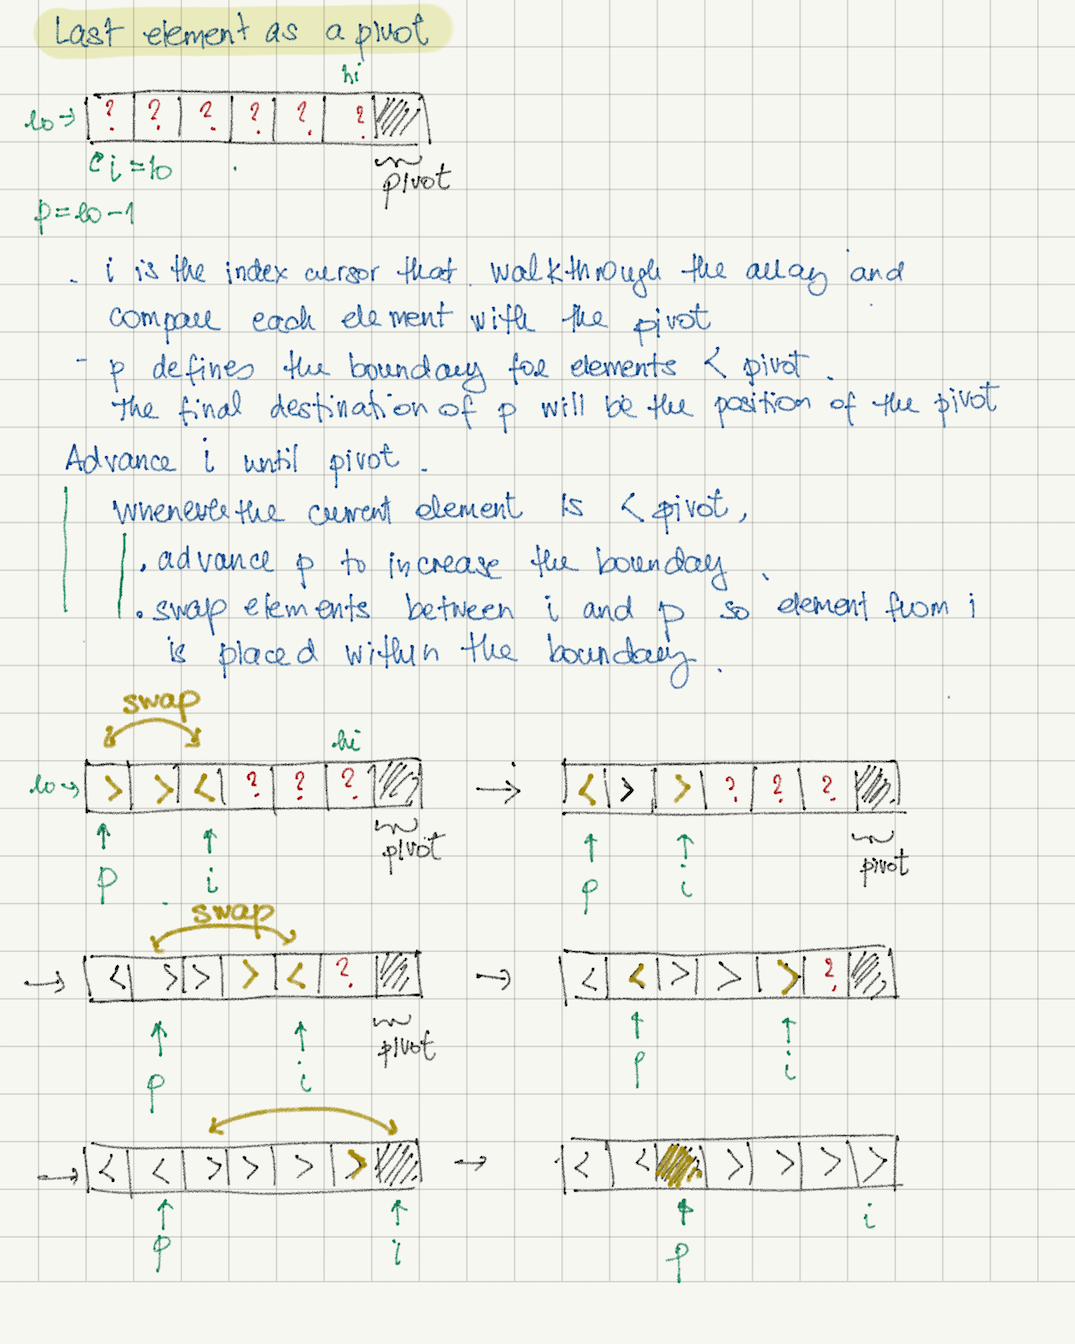 Last element as a pivot
hi
lo → ? ? ? ? ? ?
i = lo
pivot
p = lo - 1
. i is the index cursor that walkthrough the array and
compare each element with the pivot
- p defines the boundary for elements < pivot.
The final destination of p will be the position of the pivot
Advance i until pivot.
Whenever the current element is < pivot,
. advance p to increase the boundary.
. swap elements between i and p so element from i
is placed within the boundary.
swap
hi
lo → > > < ? ? ? → < > > ? ? ?
pivot pivot
p i p i
swap
→ < > > > < ? → < < > > > ?
pivot
p i p i
→ < < > > > > → < < > > > >
p i p i